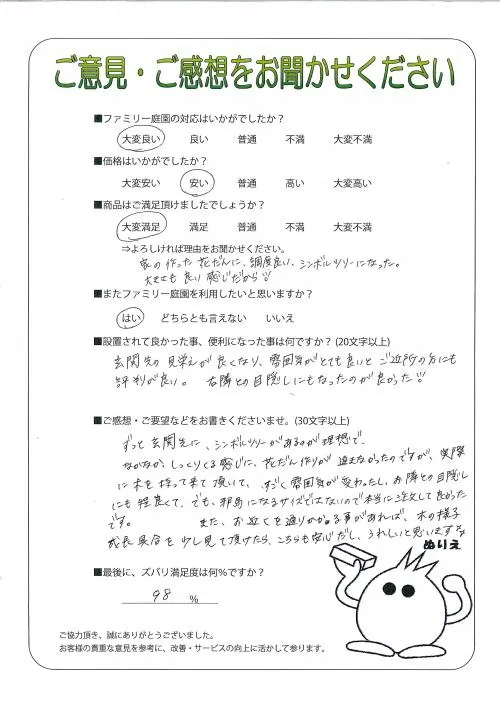 ご意見・ご感想をお聞かせください
■ファミリー庭園の対応はいかがでしたか？
大変良い 良い 普通 不満 大変不満
■価格はいかがでしたか？
大変安い 安い 普通 高い 大変高い
■商品はご満足頂けましたでしょうか？
大変満足 満足 普通 不満 大変不満
⇒よろしければ理由をお聞かせください。
家の作った花だんに、調度良い、シンボルツリーになった。
大きさも良い感じだから
■またファミリー庭園を利用したいと思いますか？
はい どちらとも言えない いいえ
■設置されて良かった事、便利になった事は何ですか？(20文字以上)
玄関先の見栄えが良くなり、雰囲気がとても良いとご近所の方にも
評判が良い。右隣との目隠しにもなったのが良かった
■ご感想・ご要望などをお書きくださいませ。(30文字以上)
ずっと玄関先に、シンボルツリーがあるのが理想で、
なかなか、しっくりくる感じに、花だん作りが進まなかったのですが、実際
に木を持って来て頂いて、すごく雰囲気が変わったし、お隣との目隠し
にも程良くて、でも、邪魔になるサイズではないので本当に注文して良かった
です。 また、お近くを通りかかる事があれば、木の様子
成長具合を少し見て頂けたら、こちらも安心だし、うれしいと思いますな
ぬりえ
■最後に、ズバリ満足度は何％ですか？
98 %
ご協力頂き、誠にありがとうございました。
お客様の貴重な意見を参考に、改善・サービスの向上に活かして参ります。